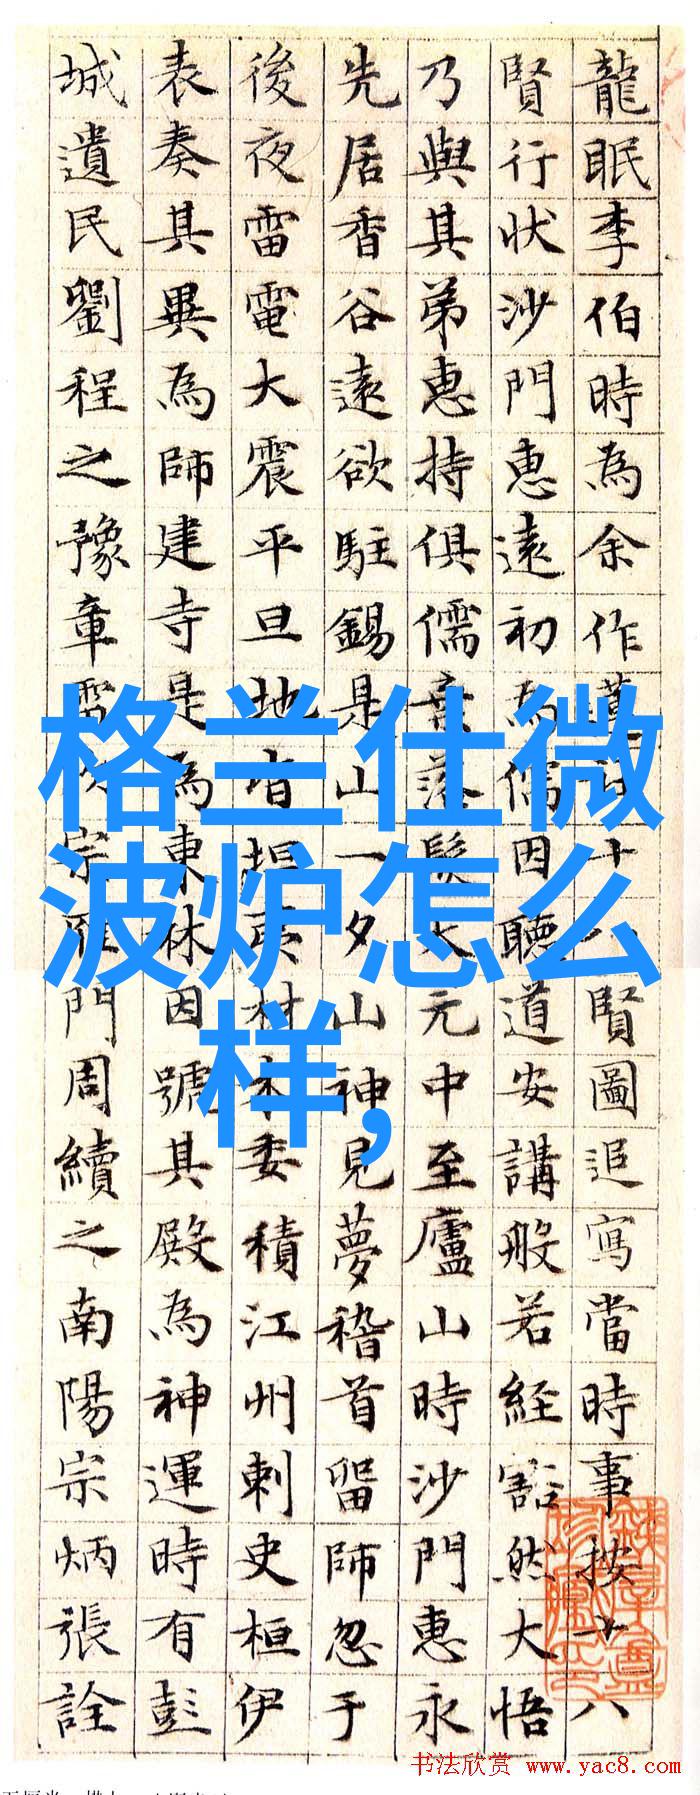 龍眠李伯時為余作蓮社十八賢圖追寫當時事按十八
賢行狀沙門惠遠初為儒因聽道安講般若經豁然大悟
乃與其弟惠持俱儒棄落髮太元中至廬山時沙門惠永
先居香谷遠欲駐錫是山一夕山神見夢稽首留師忽于
後夜雷電大震平旦地皆坦夷材木委積江州刺史桓伊
表奏其異為師建寺是為東林因號其殿為神運時有彭
城遺民劉程之豫章雷次宗雁門周續之南陽宗炳張詮
格兰仕微
波炉怎么
样,
书法欣赏 www.yac8.com